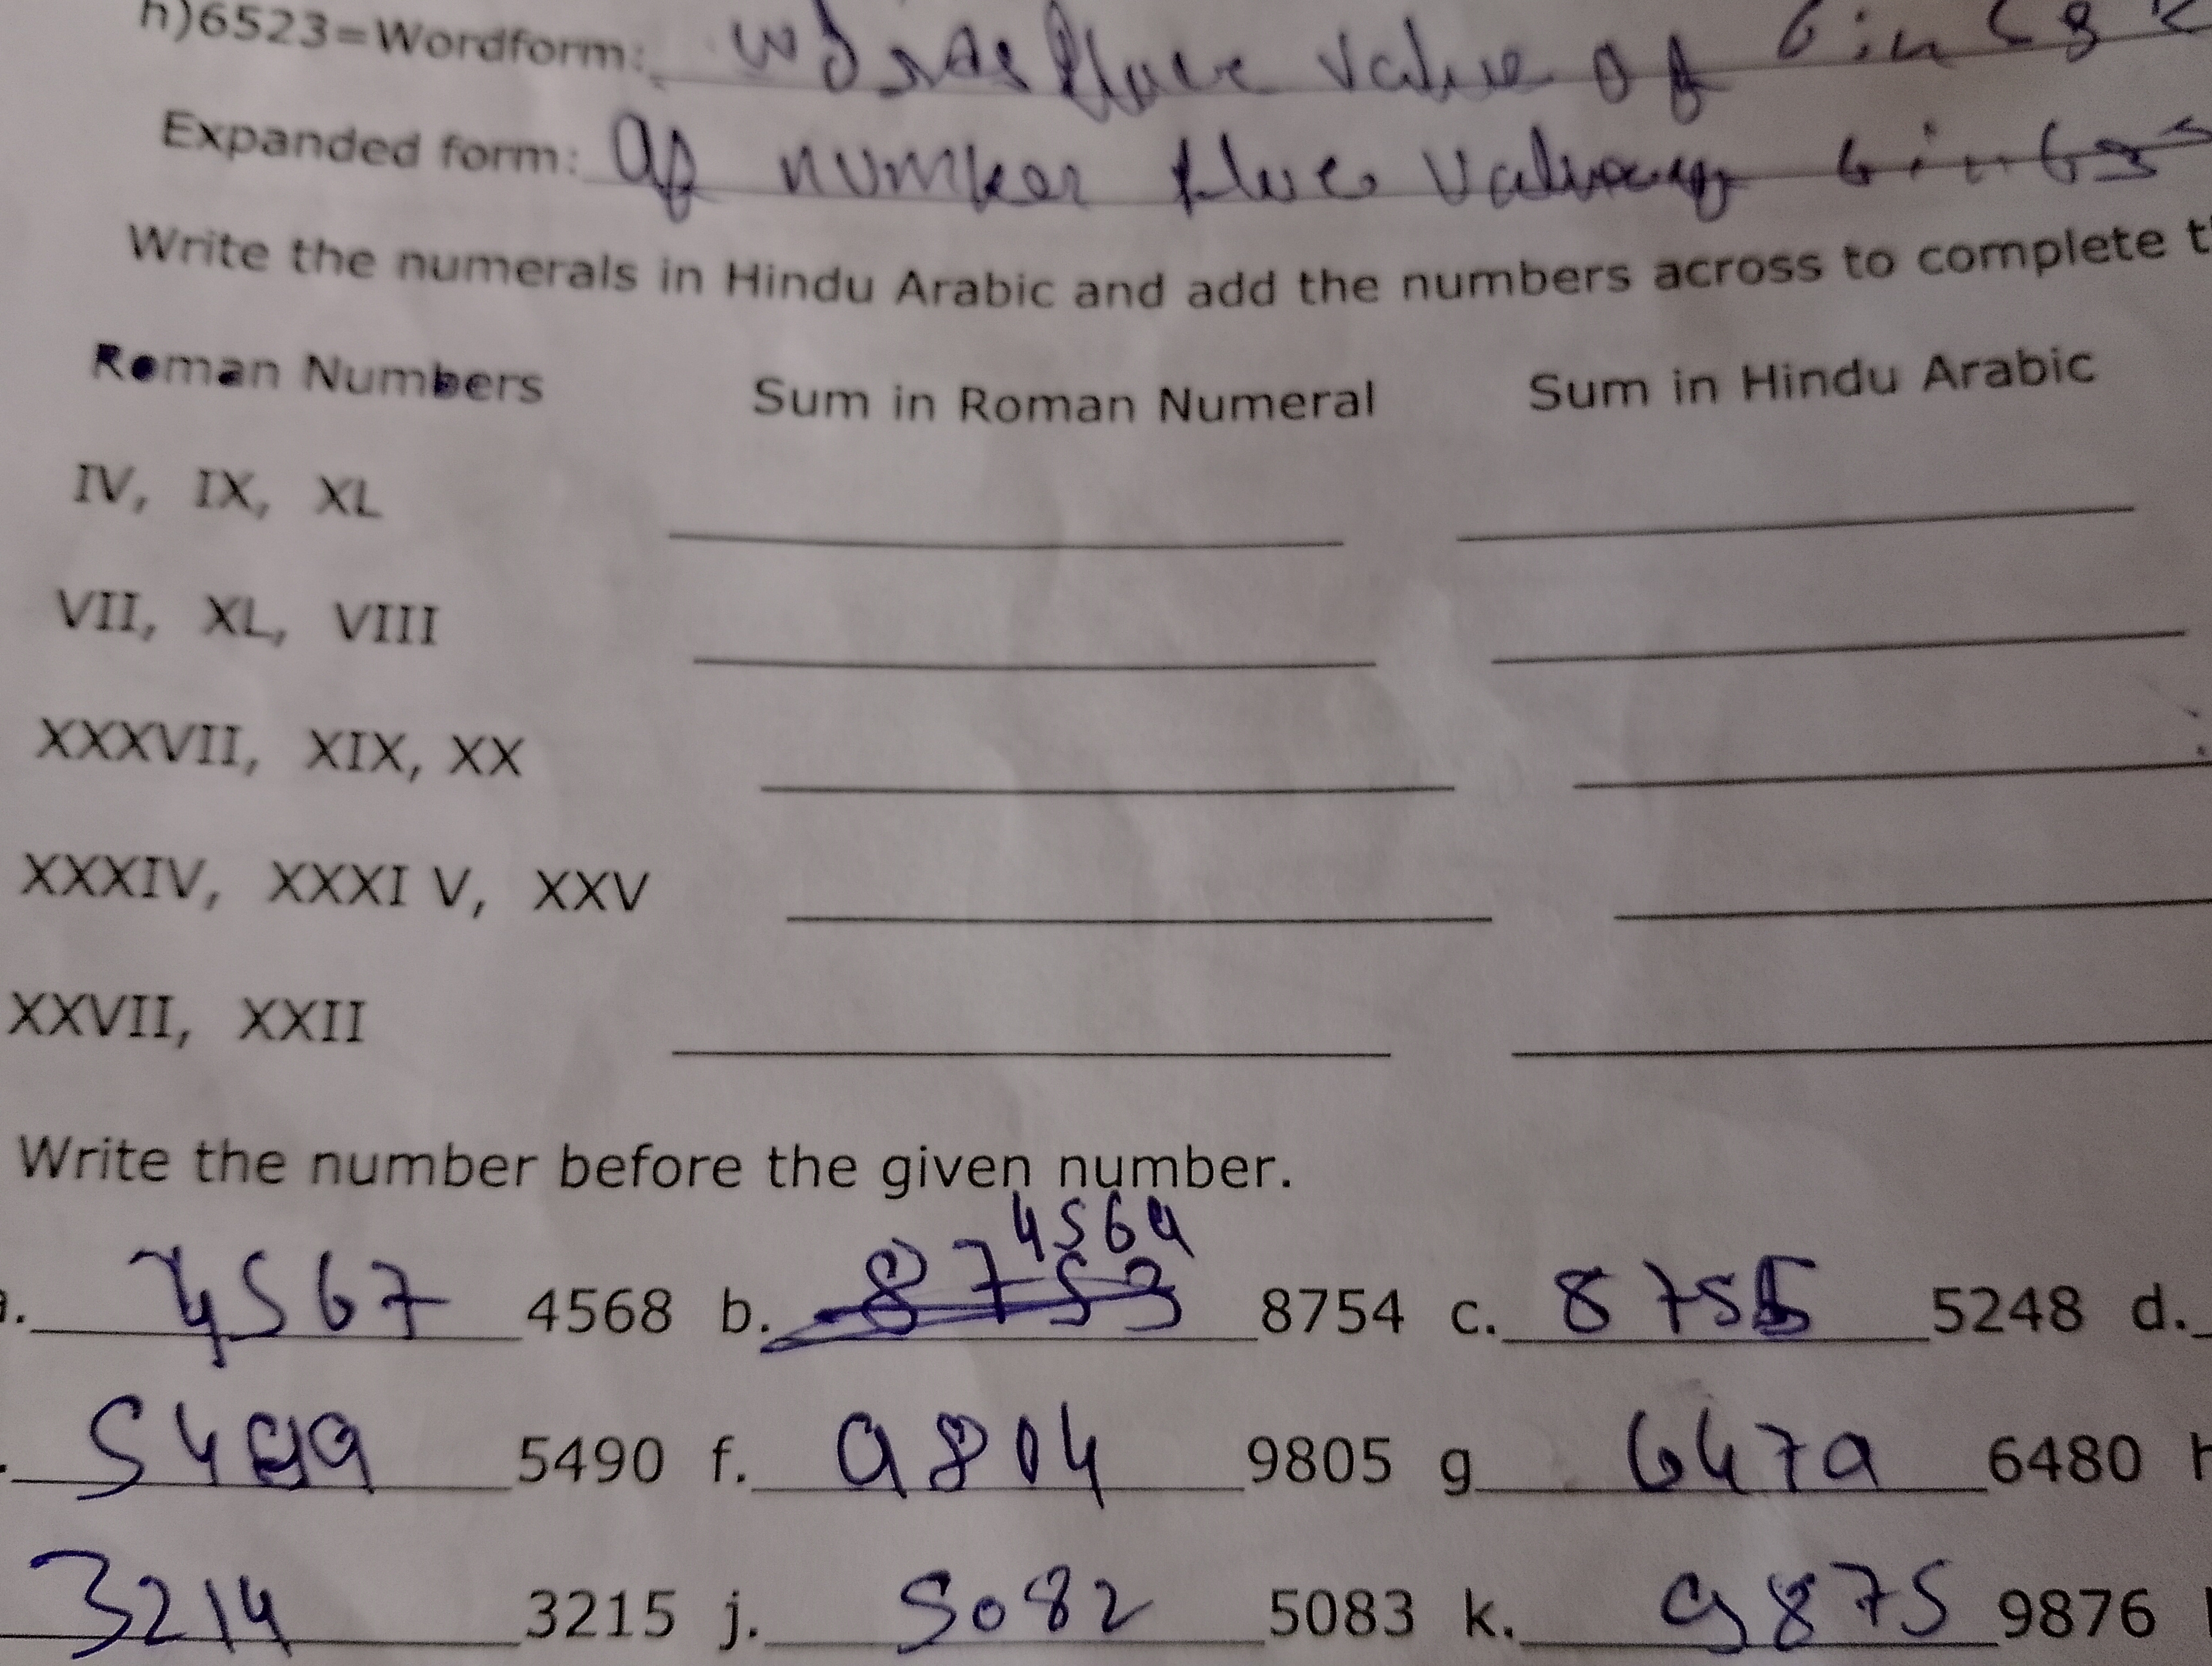 h)6523=Wordform: place value of 6 in
Expanded form: of number
Write the numerals in Hindu Arabic and add the numbers across to complete t
Roman Numbers Sum in Roman Numeral Sum in Hindu Arabic
IV, IX, XL
VII, XL, VIII
XXXVII, XIX, XX
XXXIV, XXXI V, XXV
XXVII, XXII
Write the number before the given number.
4569
4567 4568 b. 8753 8754 c. 8755 5248 d.
5489 5490 f. 9804 9805 g 6479 6480 h
3214 3215 j. 5082 5083 k. 9875 9876